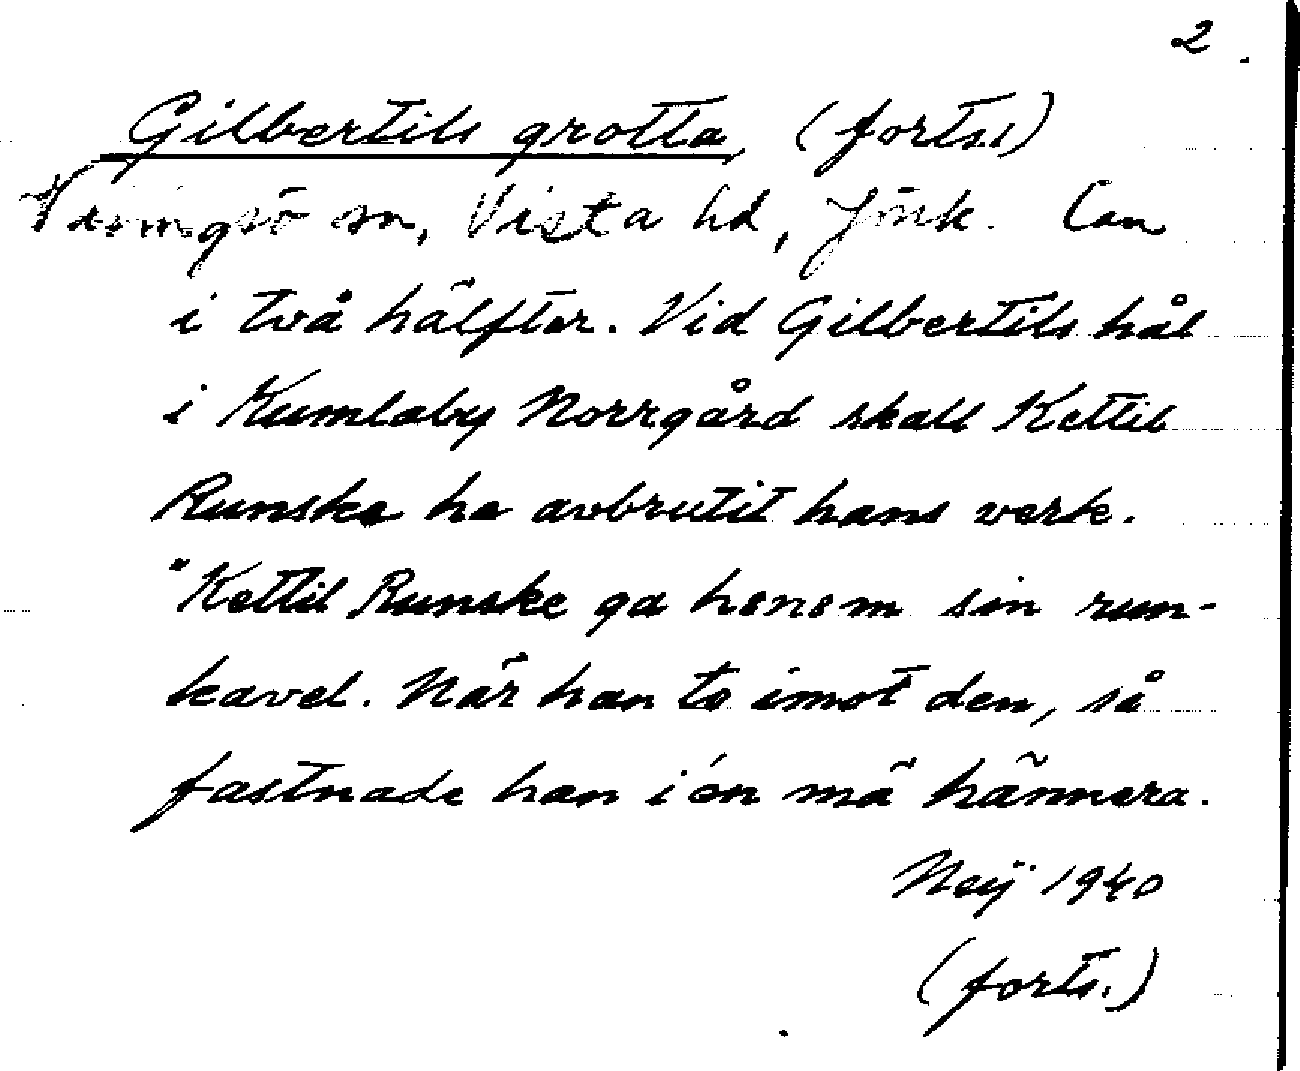 2.
Gilbertils grotta, (forts.)
Visingsö sn, Vista hd, Jönk. län
i två hälfter. Vid Gilbertils hål
i Kumlaby Norrgård skall Kettil
Runske ha avbrutit hans verk.
"Kettil Runske ga honom sin run-
kavel. När han to imot den, så
fastnade han i'en mä hännera.
Neij 1940
(forts.)